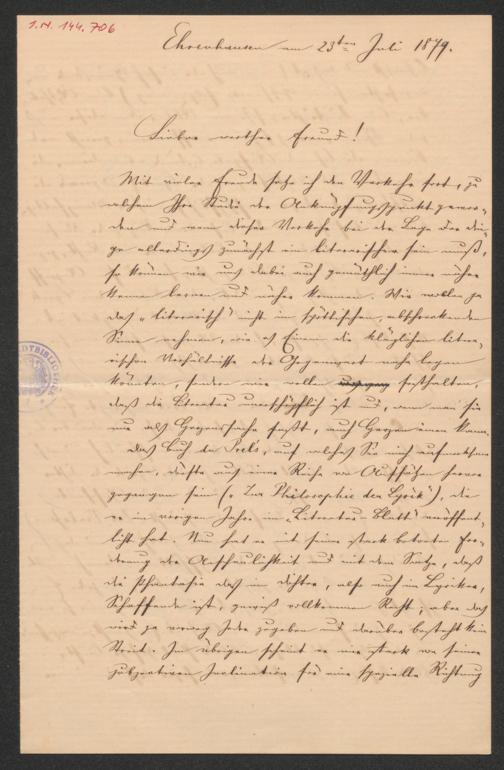 I.N. 144.706
Ehrenhausen am 23ten Juli 1879.
Lieber werther Freund!
Mit vieler Freude setze ich den Verkehr fort, zu
welchem Ihre Studie der Anknüpfungspunkt gewor-
den und wenn dieser Verkehr bei der Lage der Din-
ge allerdings zunächst ein literarischer sein muß,
so können wir uns dabei auch gemüthlich immer näher
kennen lernen und näher kommen. Wir wollen ja
das „literarisch" nicht im spöttischen, abschreckenden
Sinne nehmen, wie es Einem die kläglichen litera-
rischen Verhältnisse der Gegenwart nahe legen
könnten, sondern wir wollen festhalten,
daß die Literatur unerschöpflich ist und, wenn man sie
nur als Herzenssache faßt, auch Herzen einen kann.
Das Buch de, auf welches Sie mich aufmerksam
machen, dürfte aus einer Reihe von Aufsätzen hervor-
gegangen sein („Zur Philosophie der Lyrik"), die
er im vorigen Jahre im „Literatur-Blatt" veröffent-
licht hat. Nun hat er mit seiner stark betonten For-
derung der Anschaulichkeit und mit dem Satze, daß
die Phantasie das im Dichter, also auch im Lyriker,
Schaffende ist, gewiß vollkommen Recht; aber das
wird ja vorweg Jeder zugeben und darüber besteht kein
Streit. Im übrigen scheint er mir stark von seiner
subjectiven Inclination für eine spezielle Richtung